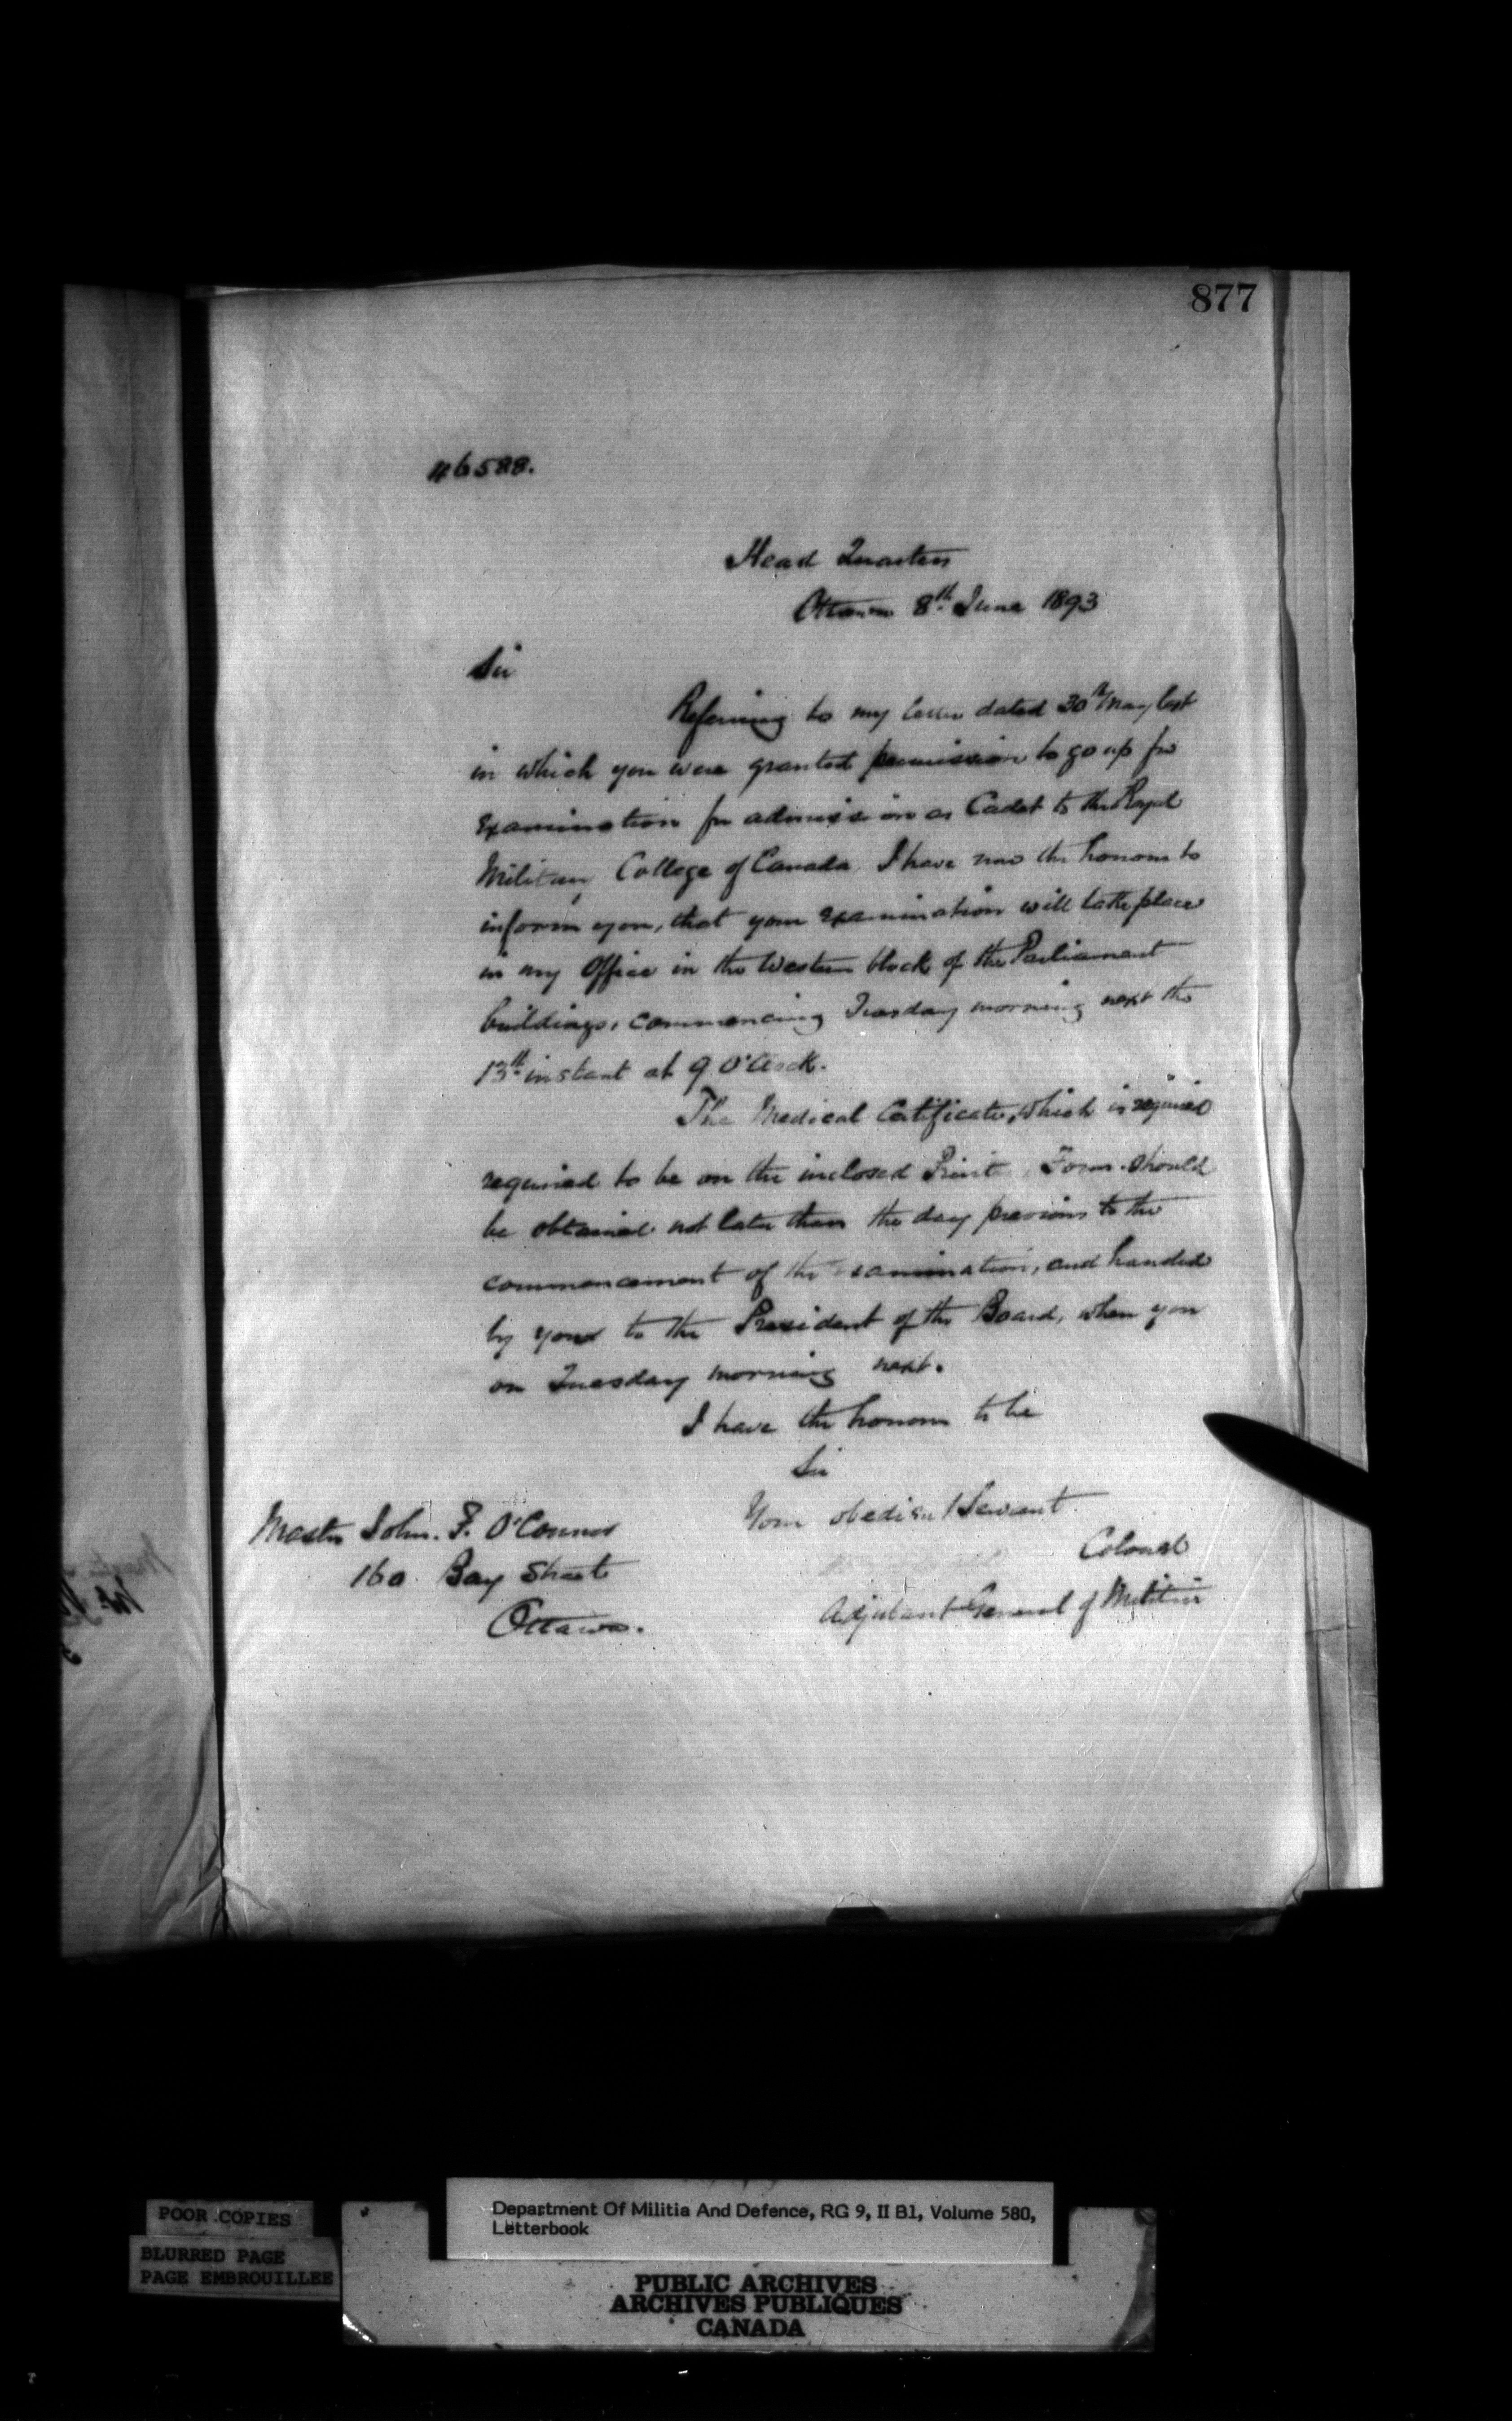 877
46588.
Head Quarters
Ottawa 8th. June 1893
Sir
Referring to my letter dated 30th May last
in which you were granted permission to go up for
Examination for admission as Cadet to the Royal
Military College of Canada I have now the honour to
inform you, that your Examination will take place
in my Office in the Western block of the Parliament
buildings, commencing Tuesday morning next the
13th. instant at 9 O'Clock.
The Medical Certificate, which is required
required to be on the inclosed Form. should
be obtained not later than the day previous to the
commencement of the examination, and handed
by you to the President of the Board, when you
on Tuesday morning next.
I have the honour to be
Sir
Your obedient Servant
Colonel
Adjutant General of Militia
Master John. F. O'Connor
160 Bay Street
Ottawa.
POOR COPIES
BLURRED PAGE
PAGE EMBROUILLEE
Department Of Militia And Defence, RG 9, II B1, Volume 580,
Letterbook
PUBLIC ARCHIVES
ARCHIVES PUBLIQUES
CANADA